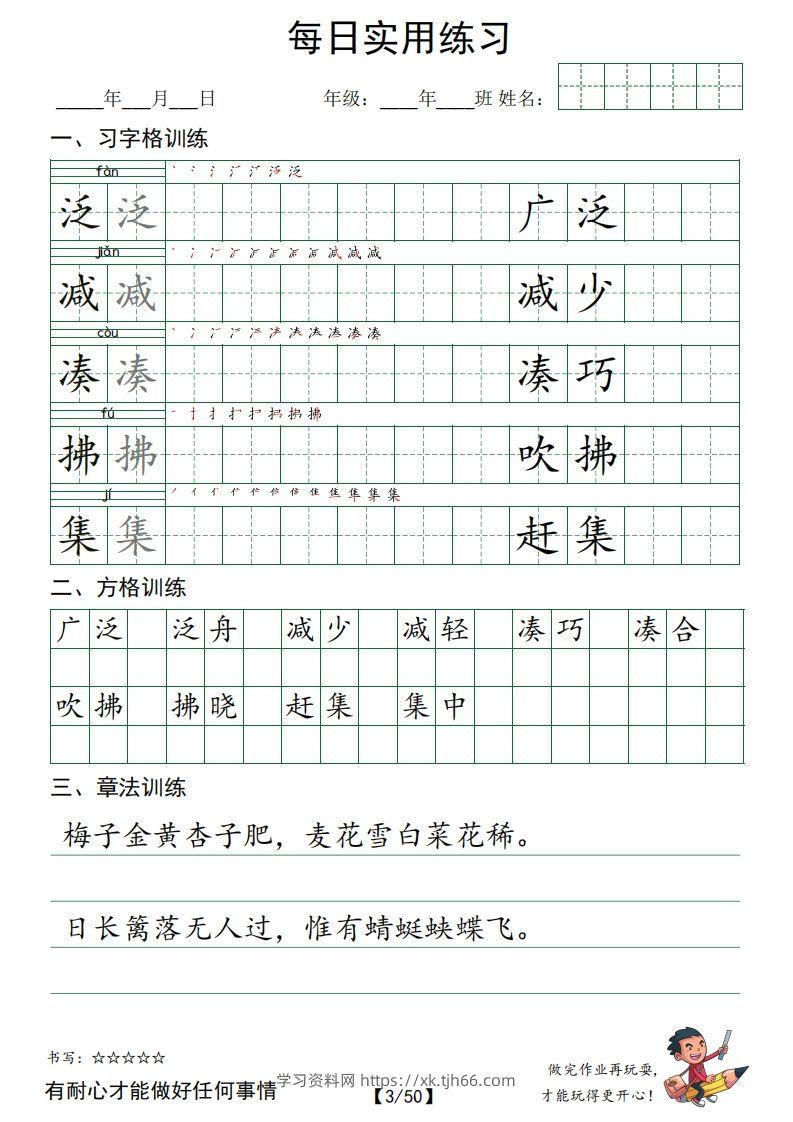 每日实用练习
_____年___月___日 年级：____年____班 姓名：
一、习字格训练
fàn
泛 泛 广 泛
jiǎn
减 减 减 少
còu
凑 凑 凑 巧
fú
拂 拂 吹 拂
jí
集 集 赶 集
二、方格训练
广泛 泛舟 减少 减轻 凑巧 凑合
吹拂 拂晓 赶集 集中
三、章法训练
梅子金黄杏子肥，麦花雪白菜花稀。
日长篱落无人过，惟有蜻蜓蛱蝶飞。
书写：☆☆☆☆☆
有耐心才能做好任何事情
学习资料网 https://xk.tjh66.com
【3/50】
做完作业再玩耍，
才能玩得更开心！